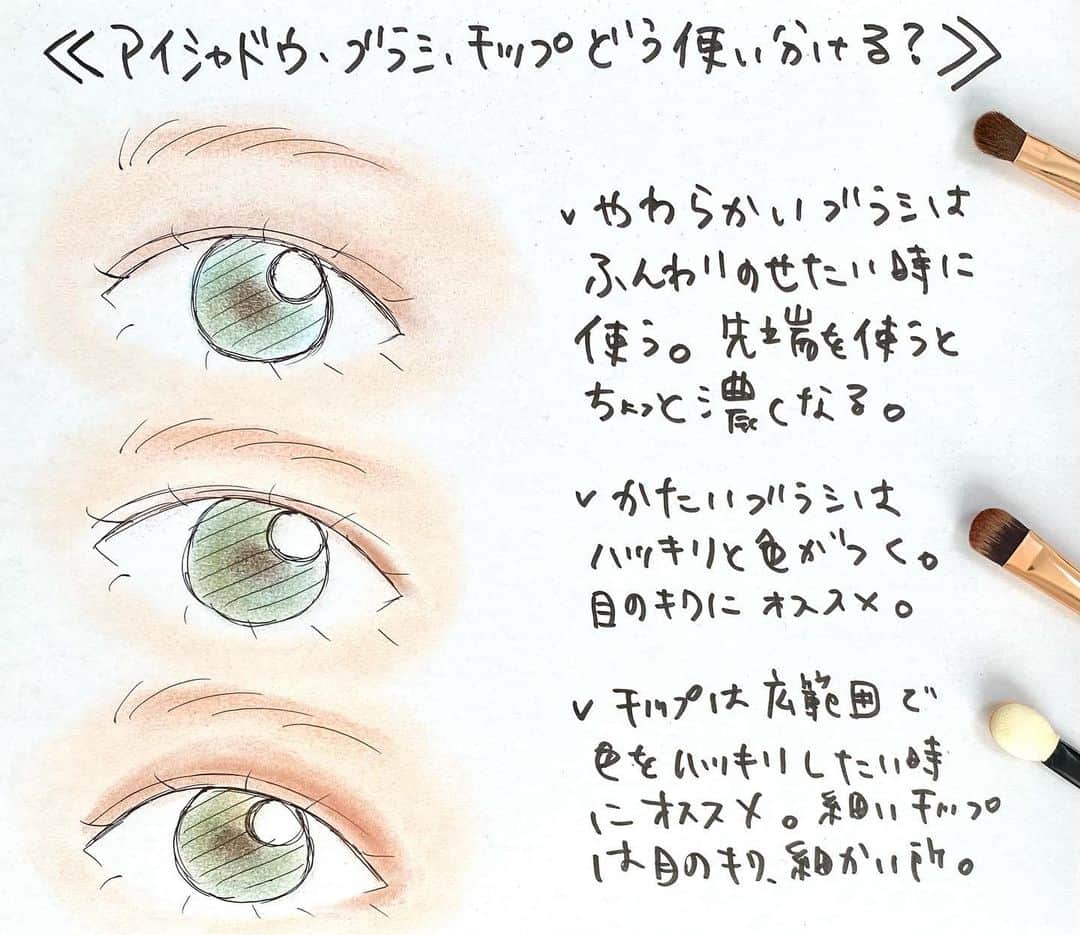 ≪アイシャドウ、ブラシ、チップどう使い分ける？≫
✓やわらかいブラシは
ふんわりのせたい時に
使う。先端を使うと
ちょっと濃くなる。
✓かたいブラシは
ハッキリと色がつく。
目のキワにオススメ。
✓チップは広範囲で
色をハッキリしたい時
にオススメ。細いチップ
は目のキワ、細かい所。